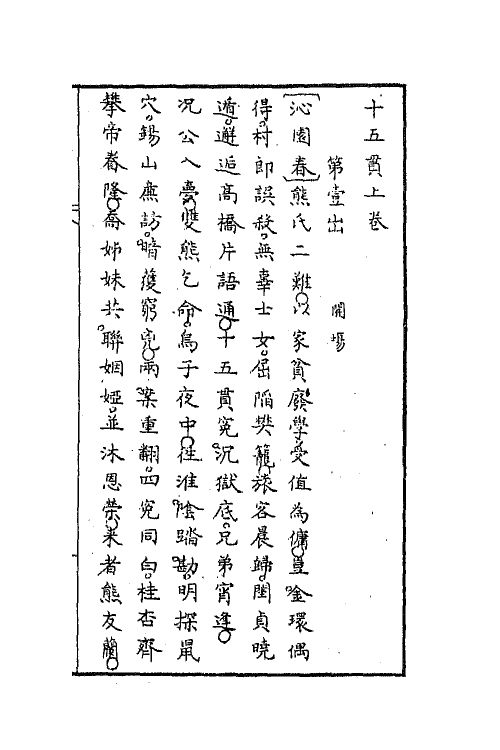 十五貫上卷
第壹出　開場
〔沁園春〕熊氏二難以家貧廢學受值為傭豈金環偶
得村郎誤殺無辜士女屈陷樊籠旅客晨歸閨貞曉
遁邂逅高橋片語通十五貫冤沉獄底兄弟宵逢
况公入夢雙熊乞命烏子夜中徃淮陰踏勘明探鼠
穴錫山廉訪暗獲窮兇兩案重翻四冤同白桂杏齊
攀帝眷隆喬姊妹共聯姻婭並沐恩榮来者熊友蘭